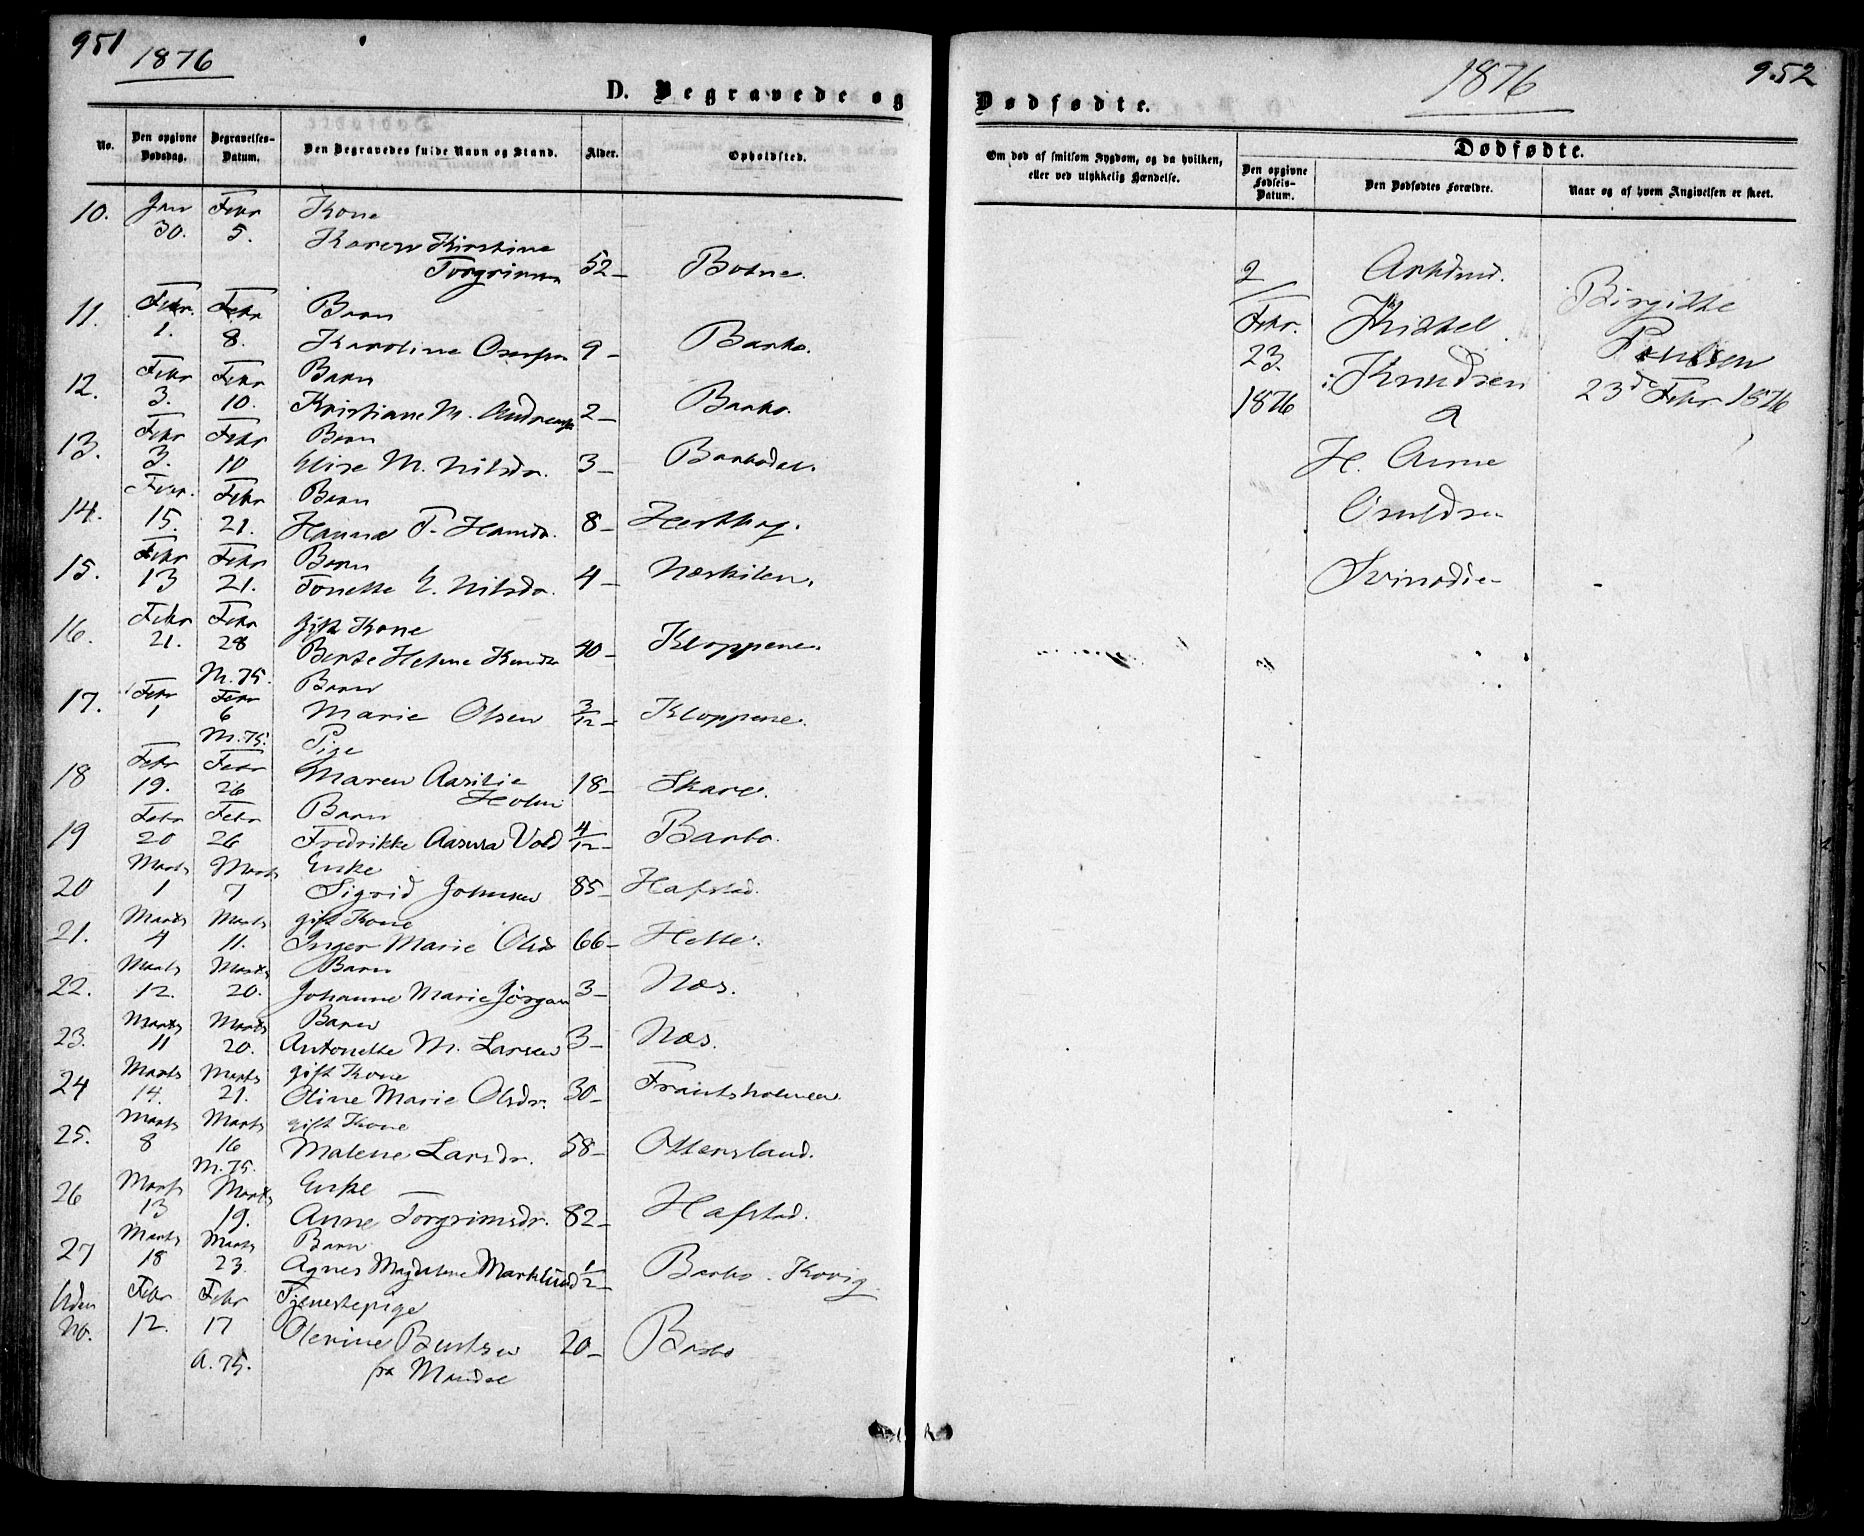 951
1876
D. Begravede og
No.
Den opgivne Dødsdag.
Begravelses-Datum.
Den Begravedes fulde Navn og Stand.
Alder.
Opholdsted.
10. Jan 30. Febr 5. Kone
Karen Kirstine
52-
11. Febr. 1. Febr 8. Barn
Karoline 9- Barbo.
12. Febr 3. Febr 10. Barn
Kristiane M. 2- Barbo.
13. Febr 3. Febr 10 Barn
Elise M. Nilsdr. 3- Barbodal.
14. Febr. 15. Febr 21. Barn
Hanna T. 8-
15. Febr 13 Febr 21. Barn
Tonette E. Nilsdr. 4- Næskilen.
16. Febr 21. Febr 28 gift Kone
Berte Helene 40- Kloppene.
M. 75.
17. Febr 1 Febr 6 Barn
Marie Olsen 3/12- Kloppene.
M. 75.
18 Febr 19. Febr 26 Pige
Maren Aasilie
Holm 18- Skare.
19 Febr 20 Febr 26 Barn
Fredrikke Vold 4/12- Barbo.
20 Marts 1 Marts 7 Enke
Sigrid Johnsen 85- Hafstad.
21. Marts 4 Marts 11. gift Kone
Inger Marie Olsd 66- Helle.
22. Marts 12. Marts 20. Barn
Johanne Marie Jørgen 3- Næs.
23. Marts 11 Marts 20. Barn
Antonette M. Larsen 3- Næs.
24 Marts 14. Marts 21. gift Kone
Oline Marie Olsdr. 30- Frantsholmen.
25. Marts 8 Marts 16 gift Kone
Malene Larsdr. 58- Ottersland.
M. 75.
26 Marts 13 Marts 19. Enke
Anne Torgrimsdr. 82- Hafstad.
27 Marts 18 Marts 23. Barn
Agnes Magdalene Marklund 1/2- Barbo.
Uden No. Febr 12. Febr 17 Tjenestepige
Olerine 20- Barbo
A. 75. fra Mandal
1876
952
Dødfødte.
Om død af smitsom Sygdom, og da hvilken,
eller ved ulykkelig Hændelse.
Dødfødte.
Den opgivne Fødsels-Datum.
Den Dødfødtes Forældre.
Naar og af hvem Angivelsen er skeet.
2/ Arbdmd. Birgitte
Febr. Kittel
23. Knudsen 23de Febr 1876
1876 a
H. Anne
Osuldsen